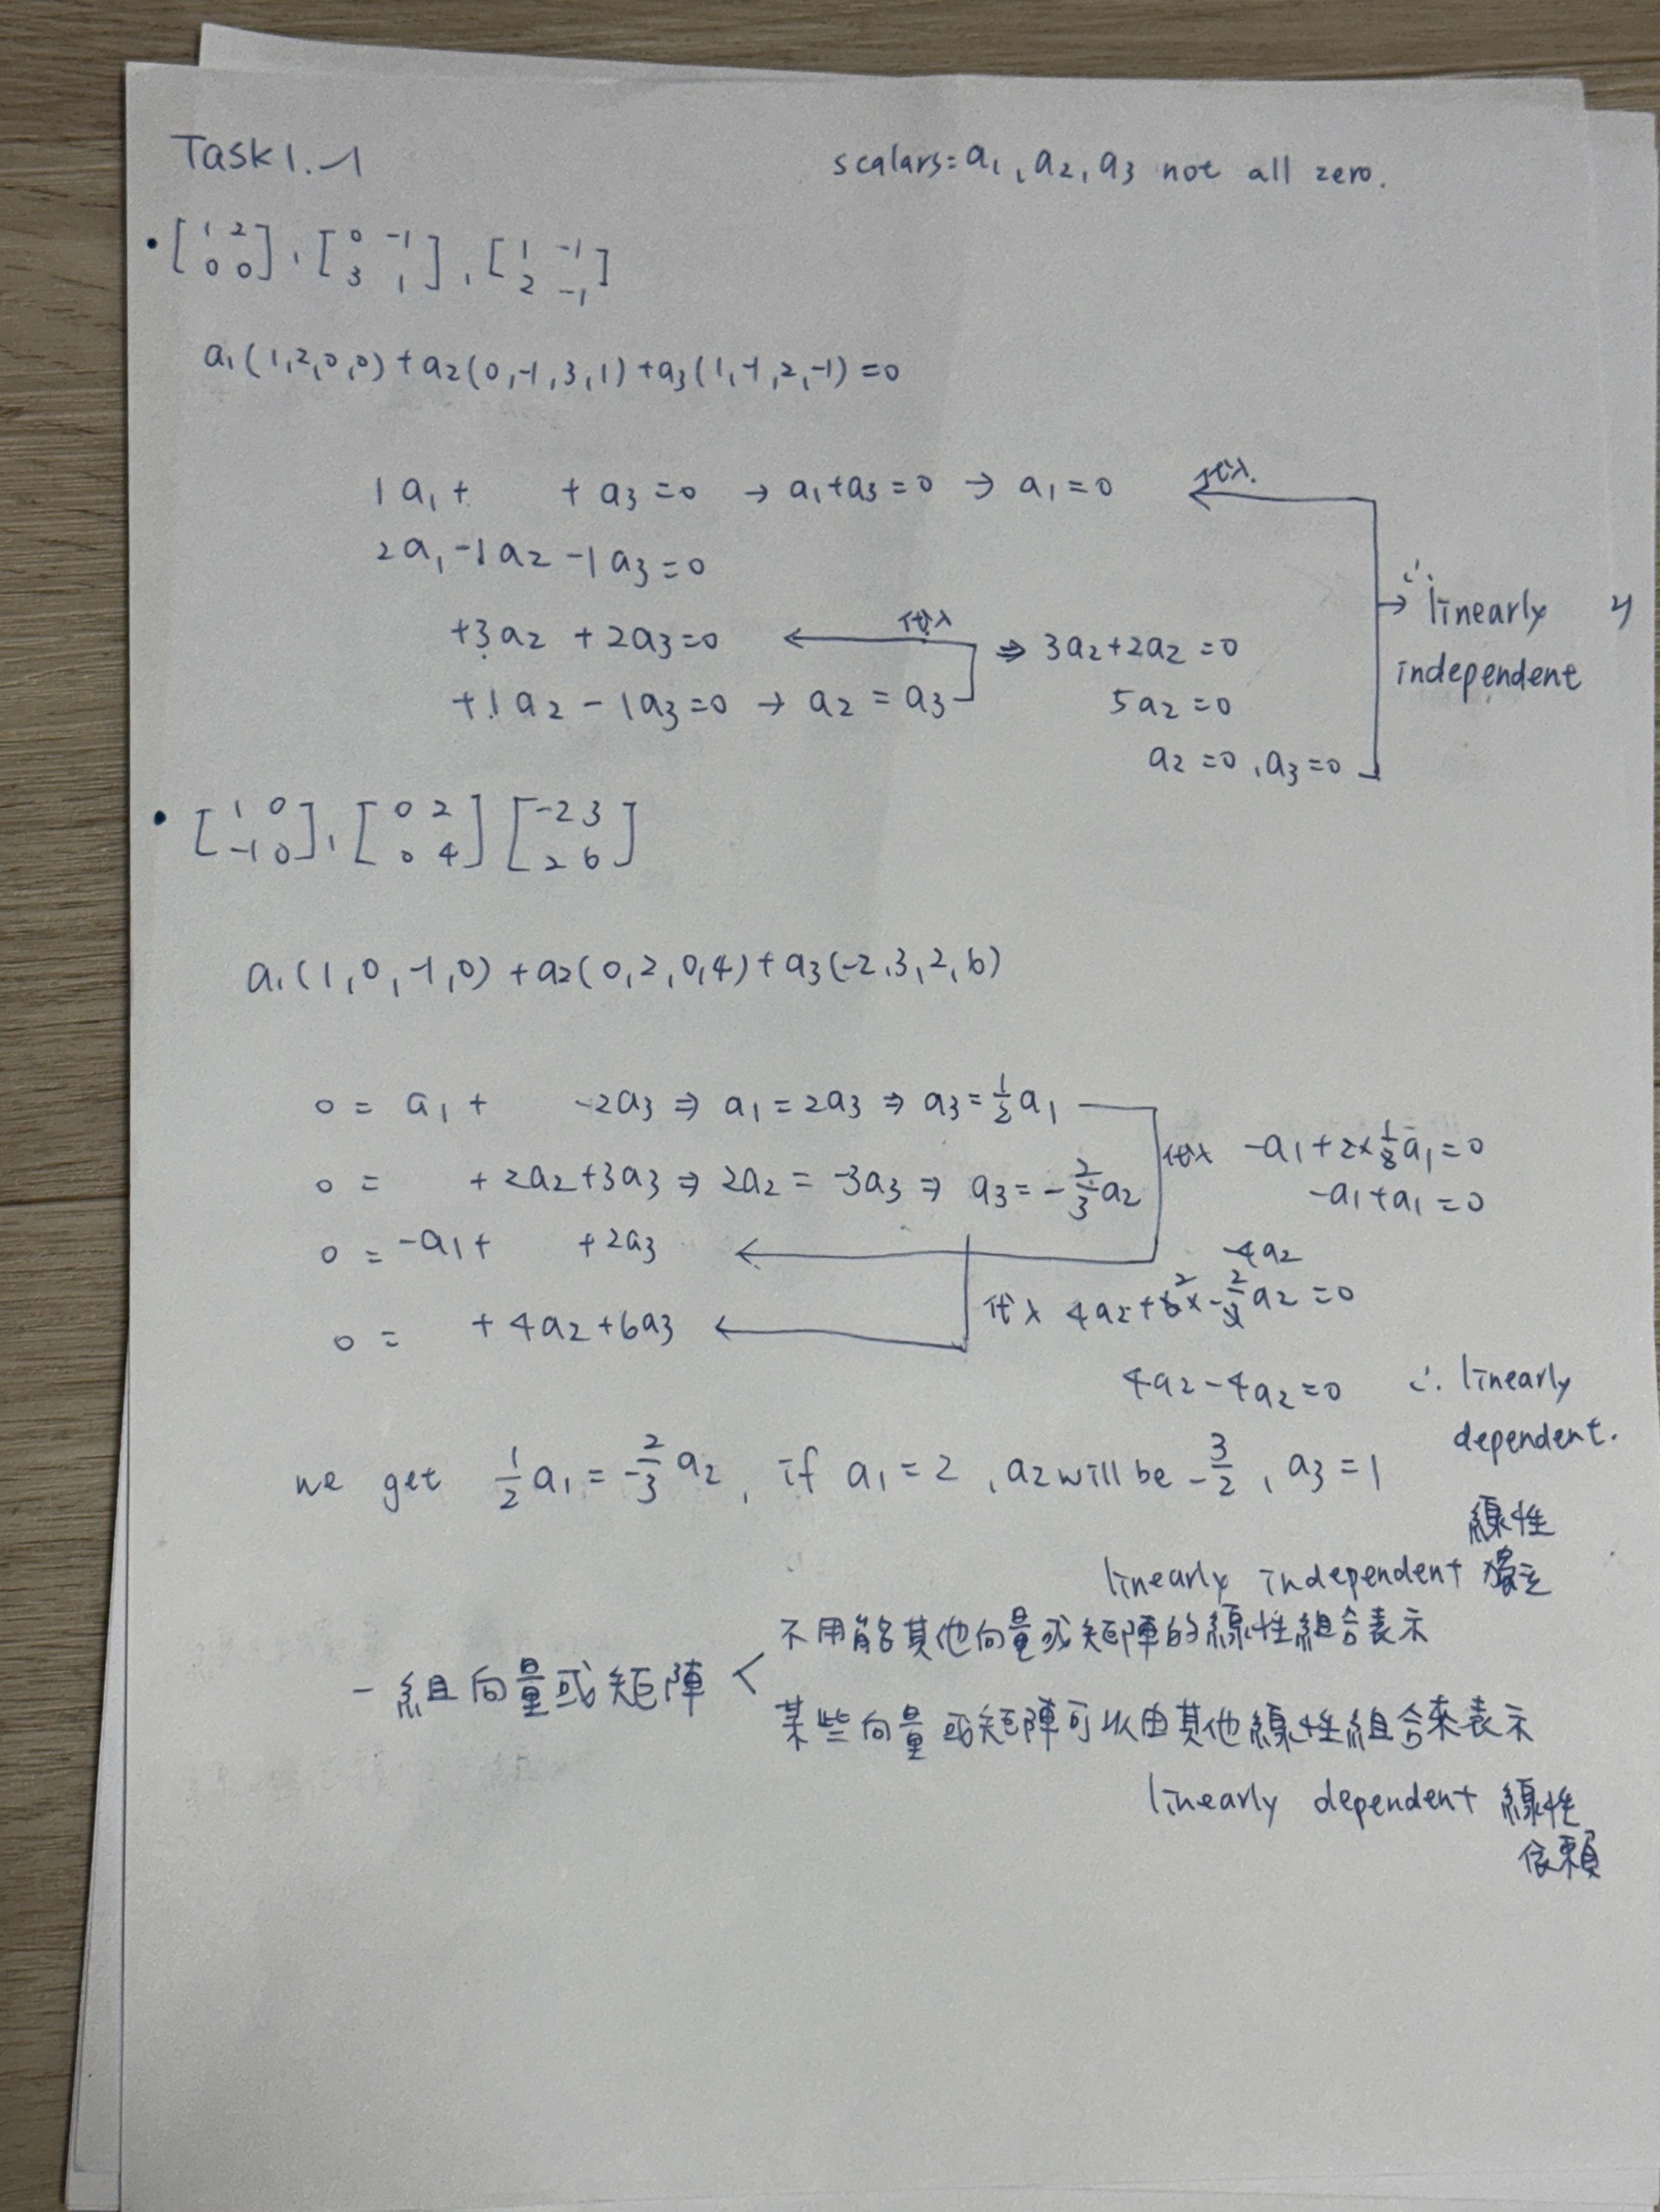 Task 1.1
scalars = a₁, a₂, a₃ not all zero.
• [1 2
0 0], [0 -1
3 1], [1 -1
2 -1]
a₁(1,2,0,0)+a₂(0,-1,3,1)+a₃(1,-1,2,-1)=0
1a₁+ +a₃=0 → a₁+a₃=0 → a₁=0 代入
2a₁-1a₂-1a₃=0
+3a₂+2a₃=0 代入 ⇒ 3a₂+2a₂=0
+1a₂-1a₃=0 → a₂=a₃
5a₂=0
a₂=0, a₃=0
∴ linearly
independent
• [1 0
-1 0], [0 2
0 4] [-2 3
2 6]
a₁(1,0,-1,0)+a₂(0,2,0,4)+a₃(-2,3,2,6)
0 = a₁+ -2a₃ ⇒ a₁=2a₃ ⇒ a₃=½a₁
0 = +2a₂+3a₃ ⇒ 2a₂=-3a₃ ⇒ a₃=-⅔a₂
0 = -a₁+ +2a₃
0 = +4a₂+6a₃
代入 -a₁+2×½a₁=0
-a₁+a₁=0
-4a₂
代入 4a₂+6×-⅔a₂=0
2
4a₂-4a₂=0
∴ linearly
dependent.
we get ½a₁=-⅔a₂, if a₁=2, a₂ will be -3/2, a₃=1
linearly independent 線性
獨立
不用能其他向量或矩陣的線性組合表示
一組向量或矩陣 <
某些向量或矩陣可以由其他線性組合來表示
linearly dependent 線性
依賴